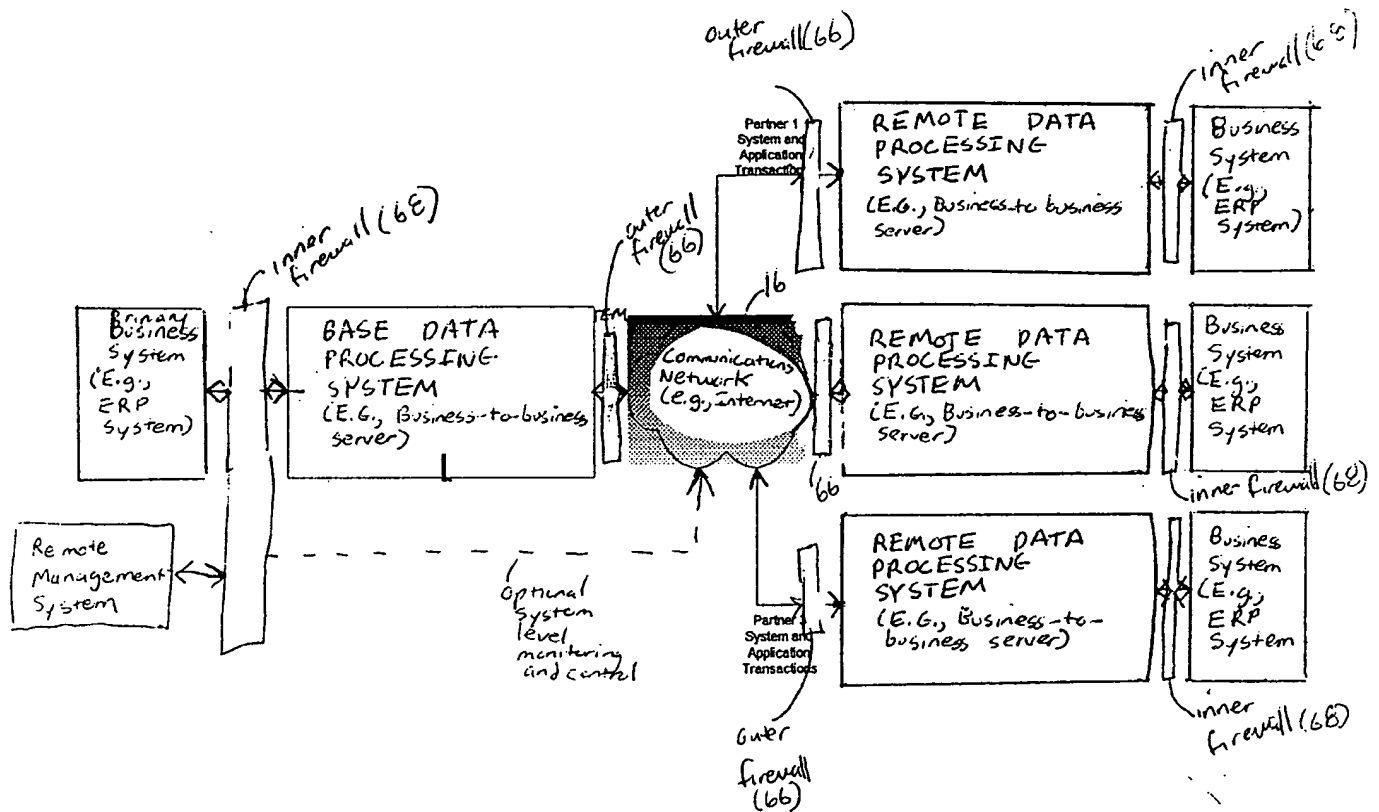 outer
firewall (66)
inner
firewall (68)
Partner 1
System and
Application
Transaction
REMOTE DATA
PROCESSING
SYSTEM
(E.G., Business-to business
server)
Business
System
(E.g.,
ERP
System)
inner
firewall (68)
outer
firewall
(66)
16
Primary
Business
System
(E.g.,
ERP
System)
BASE DATA
PROCESSING
SYSTEM
(E.G., Business-to-business
server)
Communications
Network
(e.g., internet)
REMOTE DATA
PROCESSING
SYSTEM
(E.G., Business-to-business
server)
Business
System
(E.g.,
ERP
System
66
inner firewall (68)
Remote
Management
System
optional
system
level
monitoring
and control
Partner
System and
Application
Transactions
REMOTE DATA
PROCESSING
SYSTEM
(E.G., Business-to-
business server)
Business
System
(E.g.,
ERP
System
outer
firewall
(66)
inner
firewall (68)